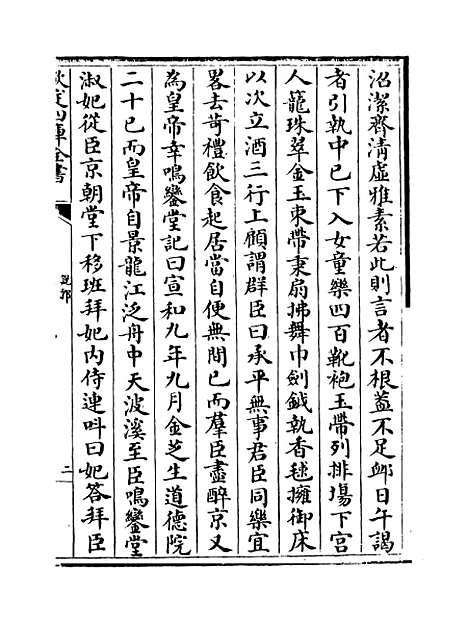 沼潔齊清虛雅素若此則言者不根蓋不足䘏日午謁
者引執中已下入女童樂四百靴袍玉帶列排場下宮
人籠珠翠金玉束帶秉扇拂舞巾劍鉞執香毬擁御床
以次立酒三行上顧謂群臣曰承平無事君臣同樂宜
畧去苛禮飲食起居當自便無間已而羣臣盡醉京又
為皇帝幸鳴鑾堂記曰宣和九年九月金芝生道德院
二十已而皇帝自景龍江泛舟中天波溪至臣鳴鑾堂
淑妃從臣京朝堂下移班拜妃内侍連呌曰妃答拜臣
欽定四庫全書
說郛
二